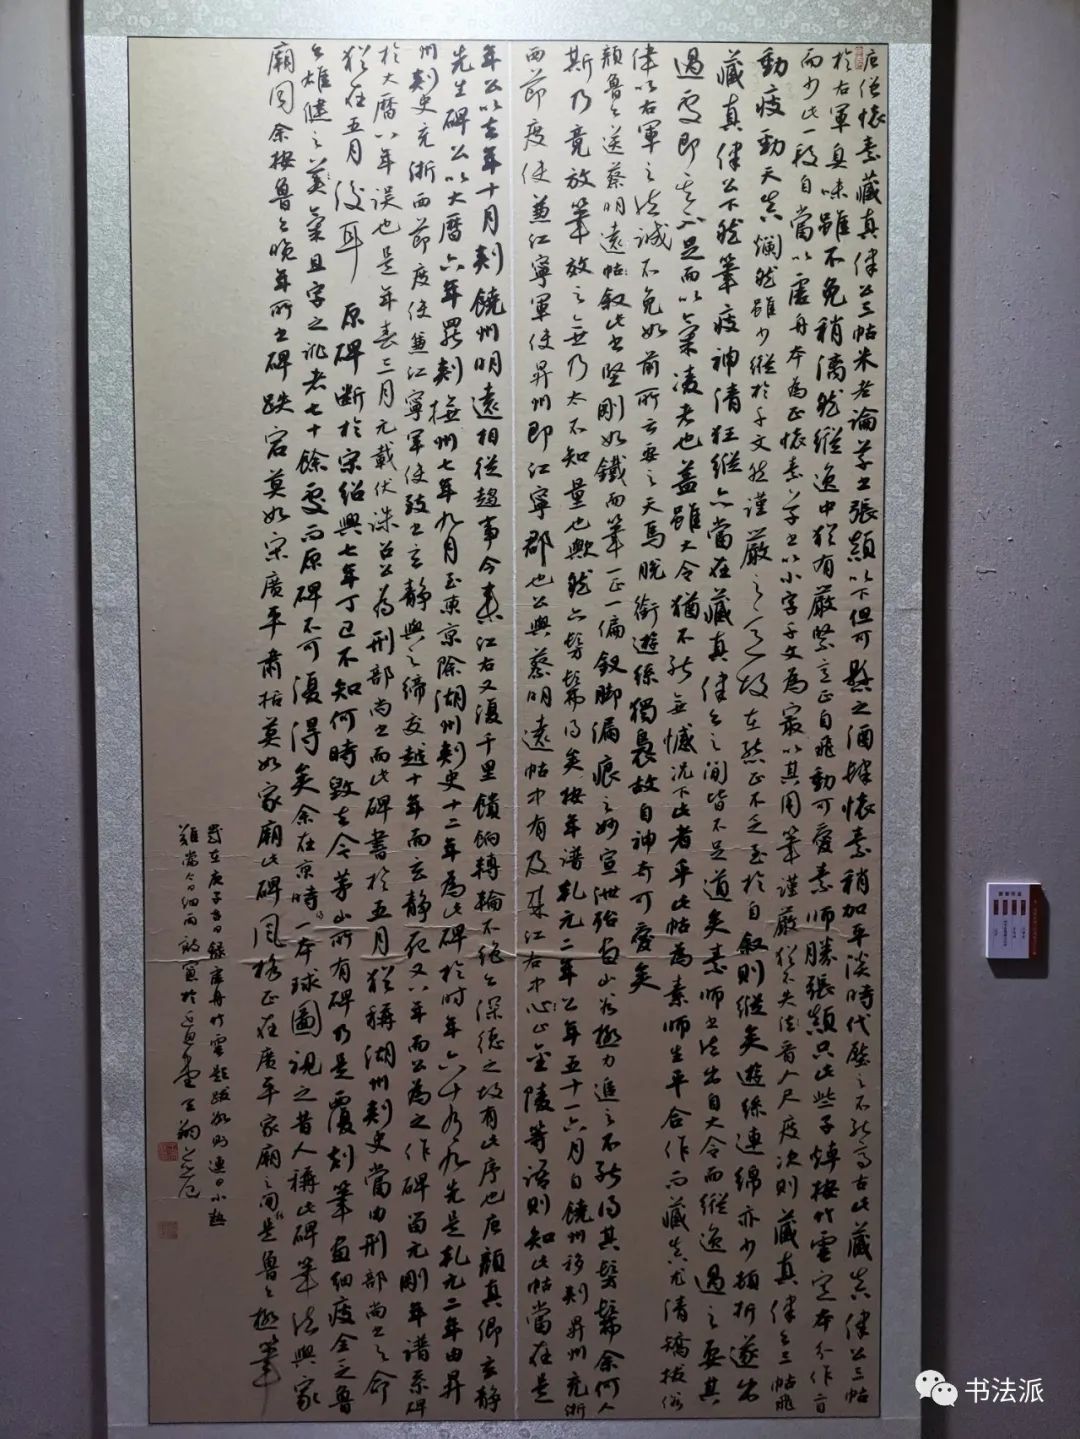 唐僧怀素藏真律公三帖米老論草書張顛以下但可懸之酒肆懷素稍加平淡時代壓之不能高古此藏真律公三帖
於右軍臭味雖不免稍漓然縱逸中猶有嚴緊意正自飛動可愛素師勝張顛只此些子
而少此一段自當以虛舟本為正懷素草書以小字千文為最以其用筆謹嚴猶不失法晉人尺度次則藏真律公三帖飛
動疲動天真爛然雖少縱於千文然謹嚴之意故在然正不乏至於自叙則縱矣遊絲連綿亦少頓折遂出
藏真律公下然筆疲神清狂縱亦當在藏真律公之間皆不足道矣素師書法出自大令而縱逸過之要其
過處即其不足而以氣凌老也蓋雖大令猶不能無憾況下此者乎此帖為素師生平合作而藏真尤清矯拔俗
律以右軍之法誠不免如前所云要之天馬脫銜遊絲獨裊故自神奇可愛矣
顏魯公送蔡明遠帖叙此書堅剛如鐵而筆一正一偏釵脚漏痕之妙宣泄殆盡山谷極力追之不能得其髣髴余何人
斯乃竟放筆放之無乃太不知量也歟然亦髣髴得矣按年譜乾元二年公年五十一六月自饒州移刺昇州充浙
西節度使兼江寧軍使昇州即江寧郡也公與蔡明遠帖中有及來江右中心正金陵等語則知此帖當在是
年公以去年十月刺饒州明遠相從趨事今來江右又復千里饋餉轉輪不絕公深德之故有此序也唐顏真卿玄靜
先生碑公以大曆六年罷刺撫州七年九月至東京除湖州刺史十二年為此碑於時年六十九先是乾元二年由昇
州刺史充浙西節度使兼江寧軍使致書玄靜與之締交越十年而玄靜死又八年而公為之作碑留元剛年譜系碑
於大曆八年誤也是年春三月元載伏誅召公為刑部尚書而此碑書於五月猶稱湖州刺史當由刑部尚書之命
猶在五月後耳 原碑斷於宋紹興七年丁巳不知何時毀去今茅山所有碑乃是覆刻筆畫細疲全乏魯
公雄健之氣且字之訛者七十餘處而原碑不可復得矣余在京時一本球圖視之昔人稱此碑筆法與家
廟同余按魯公晚年所書碑跌宕莫如宋廣平肅括莫如家廟此碑風格正在廣平家廟之間是魯公極筆
歲在庚子 月錄虛舟竹雲題跋 連日小熱
難當今日細雨
书法派